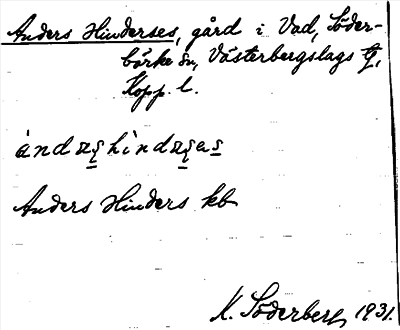 Anders Hinderses, gård i Vad, Söder-
bärke sn, Västerbergslags tg,
Kopp. l.
Anders Hinders kb
K. Söderberg 1931.